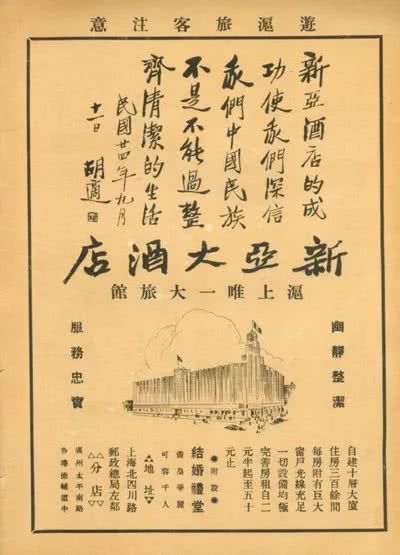 遊滬旅客注意
新亞酒店的成
功使我們深信
我們中國民族
不是不能過整
齊清潔的生活
民國廿四年九月
十一日 胡適
新亞大酒店
滬上唯一大旅館
幽靜整潔
服務忠實
自建十層大廈
住房三百餘間
每房附有巨大
窗戶光線充足
一切設備均極
完善房租自二
元半起至五十
元止
附設
結婚禮堂
矞皇華麗
可容千人
△地址▽
上海北四川路
郵政總局左鄰
△分店▽
廣州太平南路
香港德輔道中